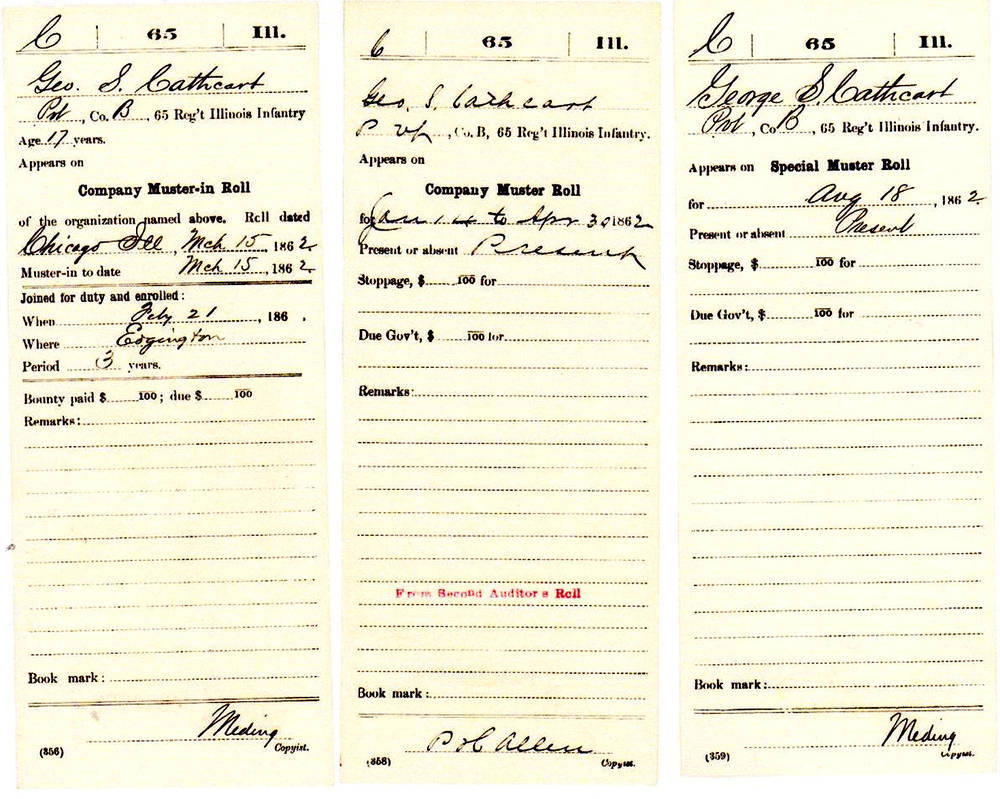 C | 65 | Ill.
Geo. S. Cathcart
Pvt, Co. B, 65 Reg't Illinois Infantry
Age 17 years.
Appears on
Company Muster-in Roll
of the organization named above. Roll dated
Chicago Ill, Mch 15, 1862.
Muster-in to date Mch 15, 1862.
Joined for duty and enrolled:
When Feby 21, 186 .
Where Edgington
Period 3 years.
Bounty paid $ 100; due $ 100
Remarks:
Book mark:
Meding
(356) Copyist.
C | 65 | Ill.
Geo. S. Cathcart
P vt, Co. B, 65 Reg't Illinois Infantry.
Appears on
Company Muster Roll
for Jan 14 to Apr 30, 1862.
Present or absent Present
Stoppage, $ 100 for
Due Gov't, $ 100 for
Remarks:
From Second Auditor's Roll
Book mark:
Allen
(358) Copyist.
C | 65 | Ill.
George S. Cathcart
Pvt, Co B, 65 Reg't Illinois Infantry.
Appears on Special Muster Roll
for Aug 18, 1862
Present or absent Present
Stoppage, $ 100 for
Due Gov't, $ 100 for
Remarks:
Book mark:
Meding
(359) Copyist.